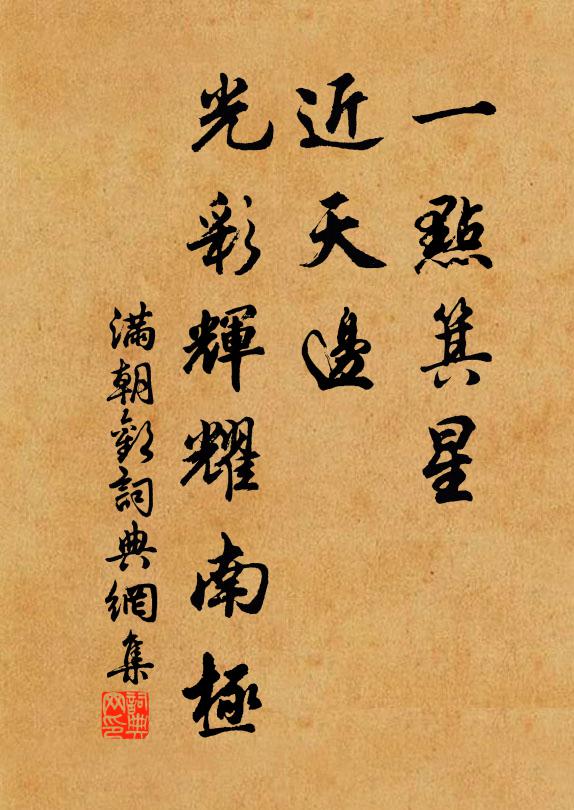 一點箕星
近天邊
光彩輝耀南極
滿朝歡詞典網集
詞典网印